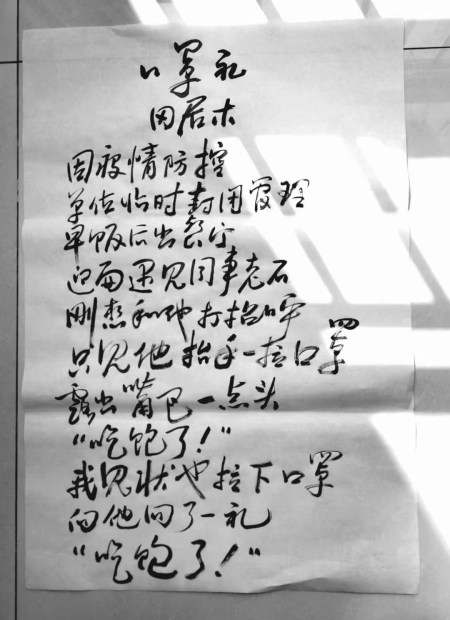 口罩礼
因居木
因疫情防控
单位临时封闭管理
早饭后出餐厅
迎面遇见同事老石
刚想和他打招呼
只见他抬手一拉口罩
露出嘴巴一点头
“吃饱了！”
我见状也拉下口罩
向他回了一礼
“吃饱了！”